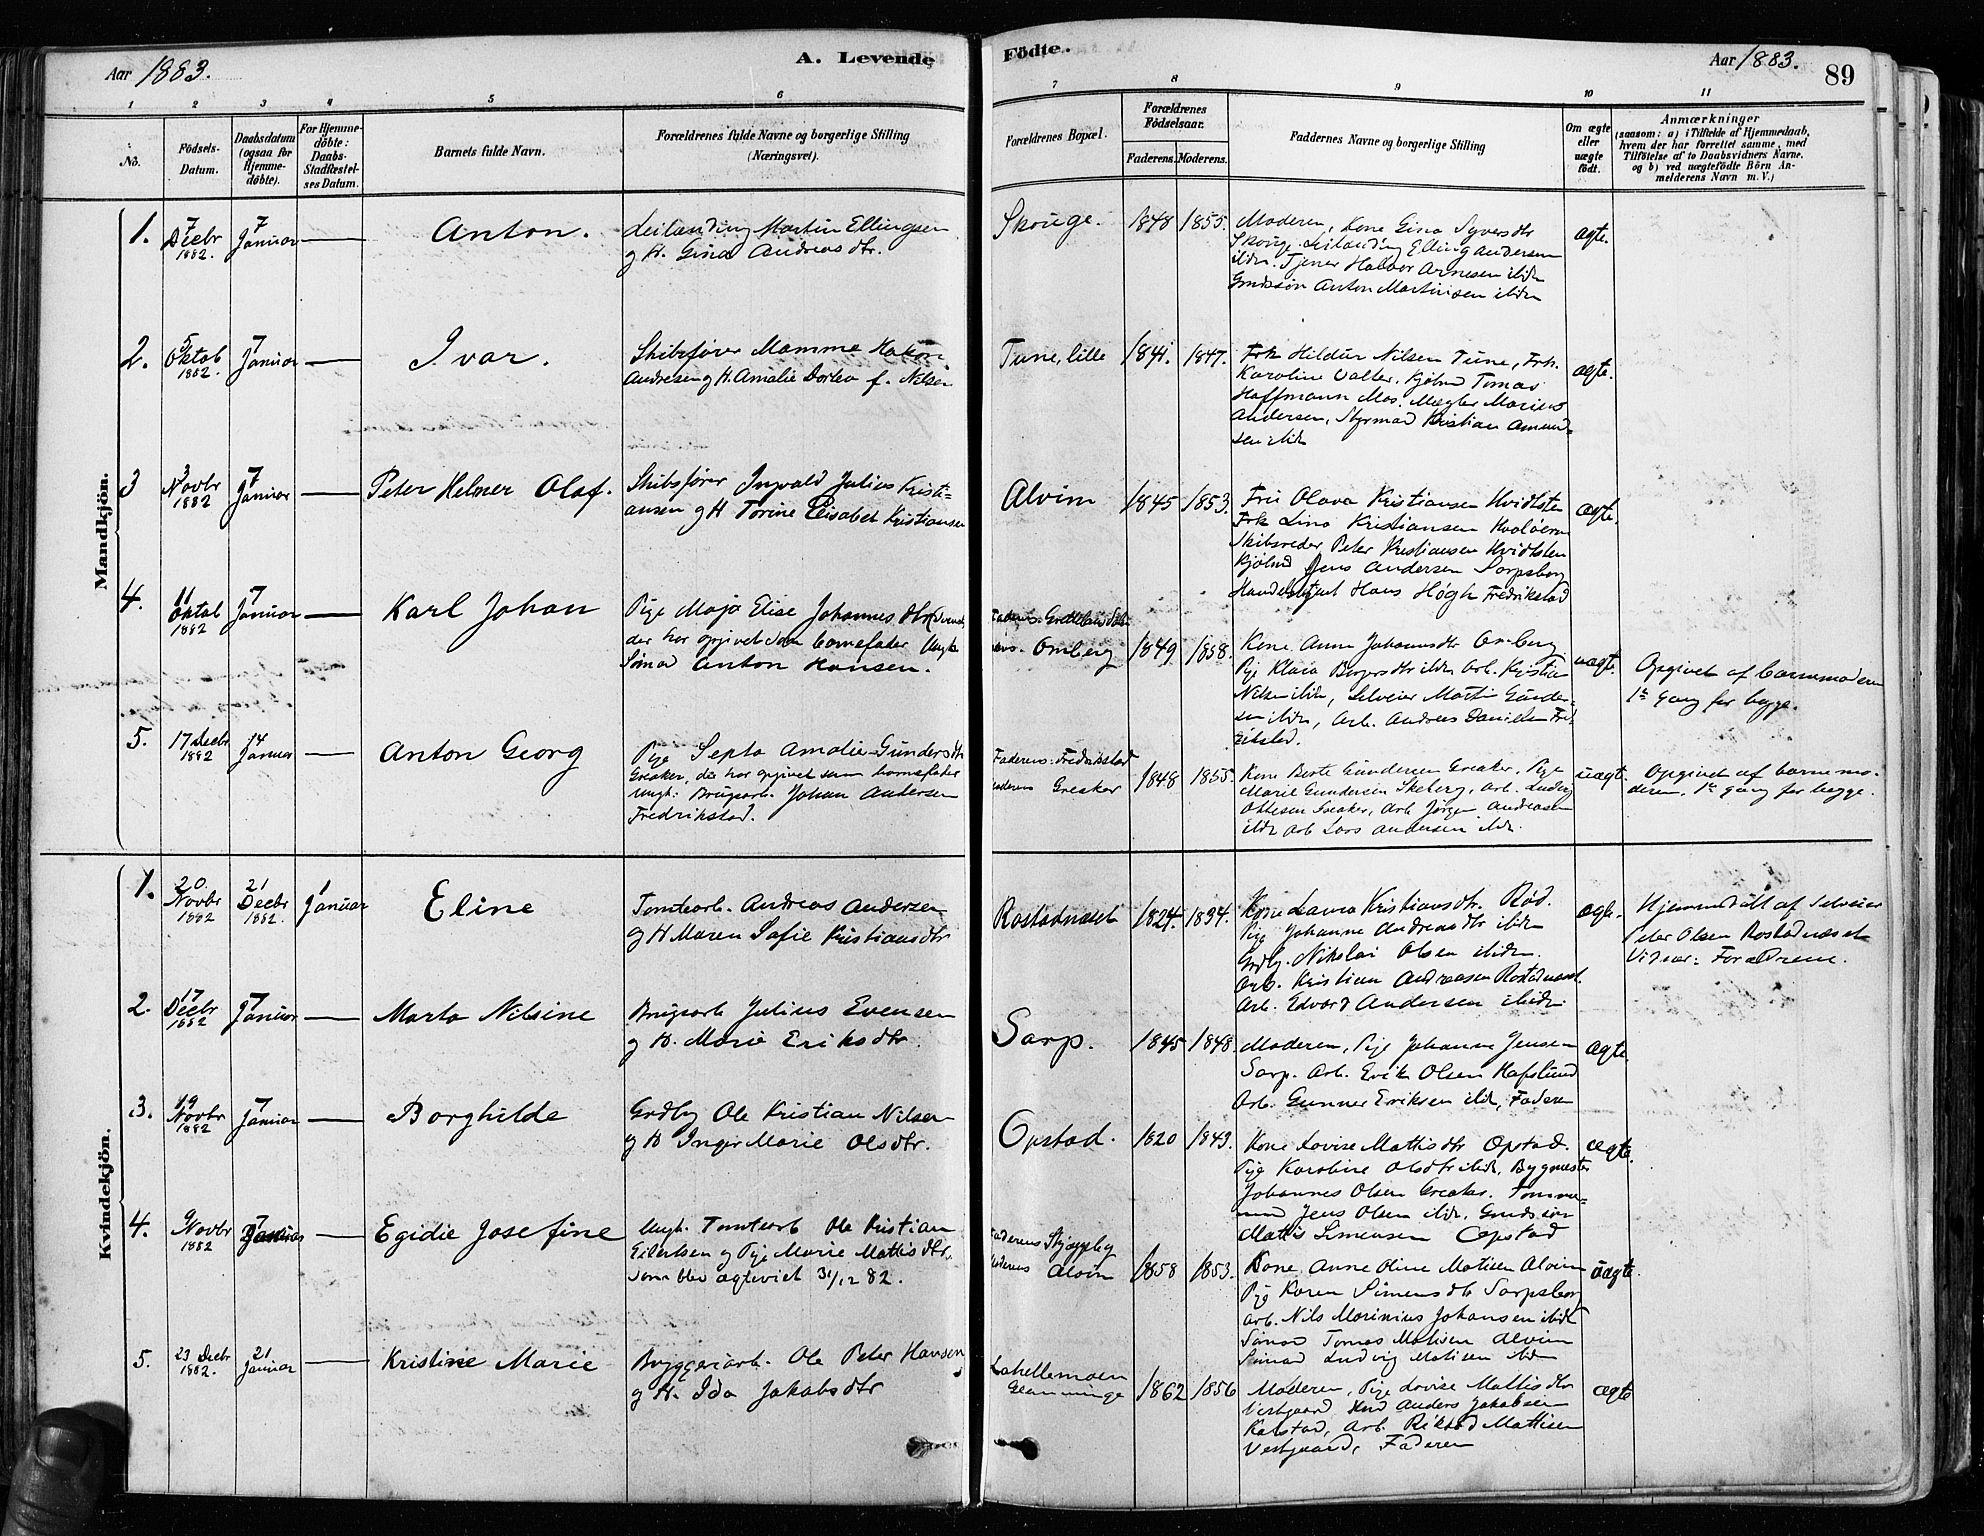 Aar 1883.
A. Levende
Födte.
Aar 1883.
89
1 2 3 4 5 6 7 8 9 10 11
No.
Födsels-
Datum.
Daabsdatum
(ogsaa for
Hjemme-
döbte).
For Hjemme-
döbte:
Daabs-
Stadfæstel-
ses Datum.
Barnets fulde Navn.
Forældrenes fulde Navne og borgerlige Stilling
(Næringsvei).
Forældrenes Bopæl.
Forældrenes
Födselsaar.
Faderens. Moderens.
Faddernes Navne og borgerlige Stilling
Om ægte
eller
uægte
födt.
Anmærkninger
(saasom: a) i Tilfælde af Hjemmedaab,
hvem der har forrettet samme, med
Tilföielse af to Daabsvidners Navne,
og b) ved uægtefödte Börn An-
melderens Navn m. V.)
Mandkjön.
1.
7
Decbr
1882.
7
Januar
Anton.
Leilænding Martin Ellingsen
og H. Gina Andreasdtr.
Skouge.
1848
1855.
Moderen, Kone Gina Syversdtr
Skouge. Leilænding Elling Andersen
ibdn. Tjener Halvor Arnesen ibidn
Grdssøn Anton Martinsen ibidn
ægte.
2.
5
Oktob
1882.
7
Januar
Ivar.
Skibsfører Mamme Hakon
Andresen og H. Amalie Dortea f. Nilsen
Tune, lille
1841.
1847.
Frk Hildur Nilsen Tune, Frk.
Karoline Valter, Kjøbmd Tomas
Hoffmann Mos. Mægler Marius
Andersen, Styrmad Kristian Amund-
sen ibidn
ægte.
3
3
Novbr
1882
7
Januar
Peter Helmer Olaf.
Skibsfører Ingvald Julius Kristi-
ansen og H Torine Elisabet Kristiansen
Alvim
1845
1853.
Fru Olava Kristiansen Hvidtsten
Frk Lina Kristiansen Hvaløerne
Skibsreder Peter Kristiansen Hvidtsten
Kjøbmd Jens Andersen Sarpsborg
Handelsbetjent Hans Høgh Fredrikstad
ægte.
4.
11
Oktob
1882
7
Januar
Karl Johan
Pige Maja Elise Johannesdtr
der har opgivet som barnefader Ungk.
Sømd Anton Hansen.
Omberg
1849
1858.
Kone Anne Johannsdtr Omberg
Pige Klara Borgersdtr ibidn Arb. Kristian
Nilsen ibidn, Selveier Martin Gunder-
sen ibidn, Arb. Andreas Danielsen Fred-
rikstad.
uægte.
Opgivet af barnemoderen
1ste Gang for begge.
5.
17 Decbr
1882
14
Januar
Anton Georg
Pige Septa Amalie Gundersdtr
Greaker, der har opgivet som barnefader
Ungk: Brugsarb. Johan Andersen
Fredrikstad.
Faderens: Fredrikstad
Moderens Greaker
1848
1855
Kone Berte Gundersen Greaker, Pige
Marie Gundersen Skeberg, Arb. Ludvig
Ottesen Greaker, Arb Jørgen Andreasen
ibidn Arb Lars Andersen ibidn.
uægt.
Opgivet af barnemo-
deren. 1ste gang for begge.
Kvindekjön.
1.
20.
Novbr
1882
21
Decbr
1882.
1
Januar
Eline
Tomtearb. Andreas Andersen
og H Maren Sofie Kristiansdtr
Rostadnæset
1824.
1834.
Kone Laura Kristiansdtr. Rød.
Pige Johanne Andreasdtr ibidn
Grdbg. Nikolai Olsen ibidn.
Arb. Kristian Andreasen Rostadnæset
Arb. Edvard Andersen ibidn.
ægte.
Hjemmedøbt af Selveier
Peter Olsen Rostadnæset
Vidner: Forældrene.
2.
17
Decbr
1882
7
Januar
Marta Nilsine
Brugsarb Julius Evensen
og H. Marie Eriksdtr.
Sarp.
1845
1848.
Moderen, Pige Johanne Jensen
Sarp. Arb. Erik Olsen Hafslund
Arb. Gunner Eriksen ibidn, Faderen
ægte.
3.
19
Novbr
1882
7
Januar
Borghilde
Grdbg Ole Kristian Nilsen
og H Inger Marie Olsdtr.
Opstad.
1820
1843.
Kone Lovise Mattisdtr Opstad.
Pige Karoline Olsdtr ibidn, Bygmester
Johannes Olsen Greaker. Tømmer-
mand Jens Olsen ibidn. Grdssøn
Mattis Simensen Opstad
ægte.
4.
9
Novbr
1882
7
Januar
Egidie Josefine
Ungk. Tomtearb Ole Kristian
Eilertsen og Pige Marie Mattisdtr.
som blev ægteviet 31/12 82.
Faderens Skjøggeby
Moderens Alvim
1858
1853.
Kone Anne Oline Matisen Alvim
Pige Karen Simensdtr Sarpsborg
Arb. Nils Marinius Johansen ibidn
Sømd Tomas Matisen Alvim
Sømd Ludvig Matisen ibidn
uægte.
5.
23 Decbr
1882.
21
Januar
Kristine Marie
Bryggeriarb. Ole Peter Hansen
og H. Ida Jakobsdtr
Lahellemoen
Glemminge
1862
1856
Moderen, Pige Lovise Mattisdtr
Vestgaard Anders Jakobsen
Kalstad, Arb. Rikard Mattisen
Vestgaard, Faderen
ægte